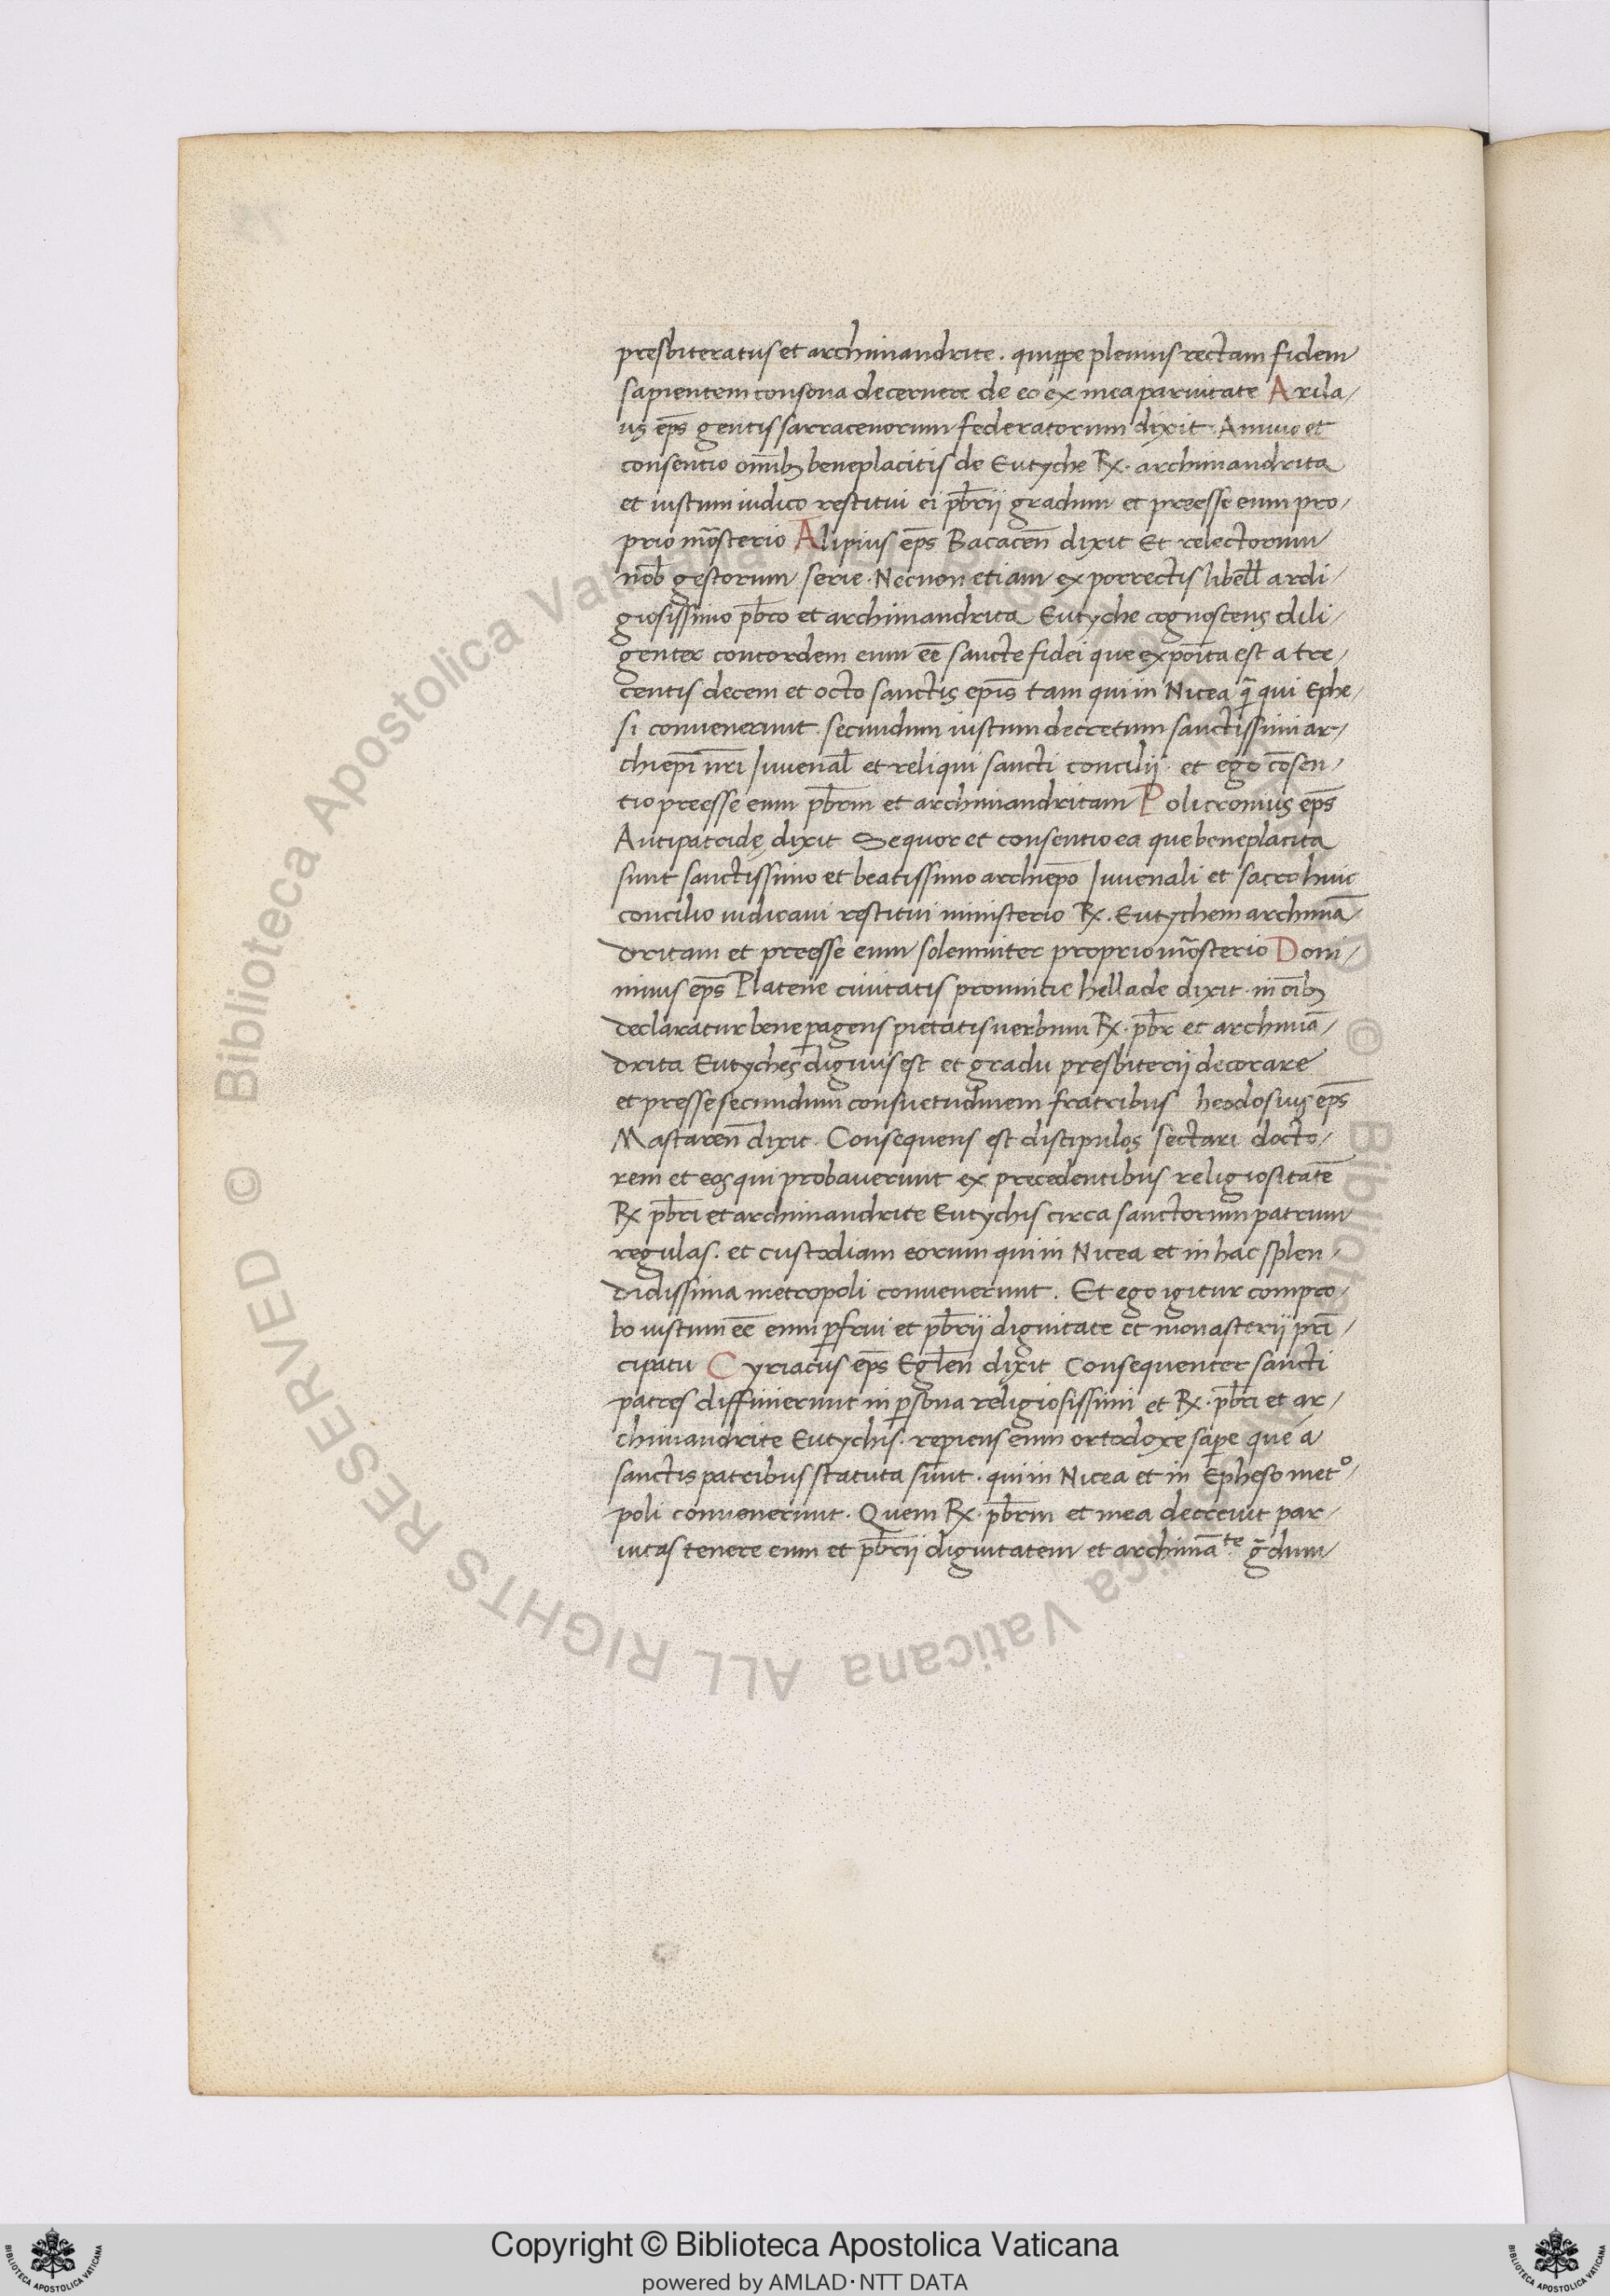 presbiteratus et archimandrite . quippe plenius rectam fidem
sapientem consona decernere de eo ex mea parvitate Arila/
us ep̄s gentis sarracenorum federatorum dixit Annuo et
consentio om̄ib; beneplacitis de Eutyche Rx. archimandrita
et iustum iudico restitui ei pb̄rij gradum et preesse eum pro/
prio mōsterio Alipius ep̄s Bacacen̄ dixit Et relectorum
nob̄ gestorum serie . Necnon etiam ex porrectis libell̄ a rdi/
giosissimo pb̄ro et archimandrita Eutyche cognoscens dili/
genter concordem eum ee̅ sancte fidei que expoīta est a tre/
centis decem et octo sanctis ep̄is tam qui in Nicea q̄ qui Ephe/
si convenerunt . secundum iustum decretum sanctissimi ar/
chiep̄i nr̄i Iuvenal̄ et reliqui sancti concilij . et ego cōsen/
tio preesse eum pb̄rm et archimandritam Policronius ep̄s
Antipatridę dixit Sequor et consentio ea que beneplacita
sunt sanctissimo et beatissimo archiep̄o Iuvenali et sacro huic
concilio iudicavi restitui ministerio Rx. Eutychem archimā/
dritam et preesse eum solemniter proprio mōsterio Domi/
ninus ep̄s Platene civitatis provincie hellade dixit . in oīb;
declaratur bene pagens pietatis verbum Rx. pb̄r et archimā/
drita Eutyches dignus est et gradu presbiterij decorare
et presse secundum consuetudinem fratribus heodosius ep̄s
Mastaren̄ dixit . Consequens est discipulos sectari docto/
rem et eos qui probaverunt ex precedentibus religiositatē
Rx pb̄ri et archimandrite Eutychis circa sanctorum patrum
regulas . et custodiam eorum qui in Nicea et in hac splen/
didissima metropoli convenerunt . Et ego igitur compro/
bo iustum ee̅ eum pfrui et pb̄rij dignitate et monasterij prī/
cipatu Cyriacus ep̄s Egl̄en dixit Consequenter sancti
patres diffinierunt in psona religiosissimi et Rx. pb̄ri et ar/
chimandrite Eutychis . repiens eum ortodoxe sape que a
sanctis patribus statuta sunt . qui in Nicea et in Epheso metº/
poli convenerunt . Quem Rx. pb̄rm et mea decrevit par/
vitas tenere eum et pb̄rij dignitatem et archimāᵗᵉ gd̄um